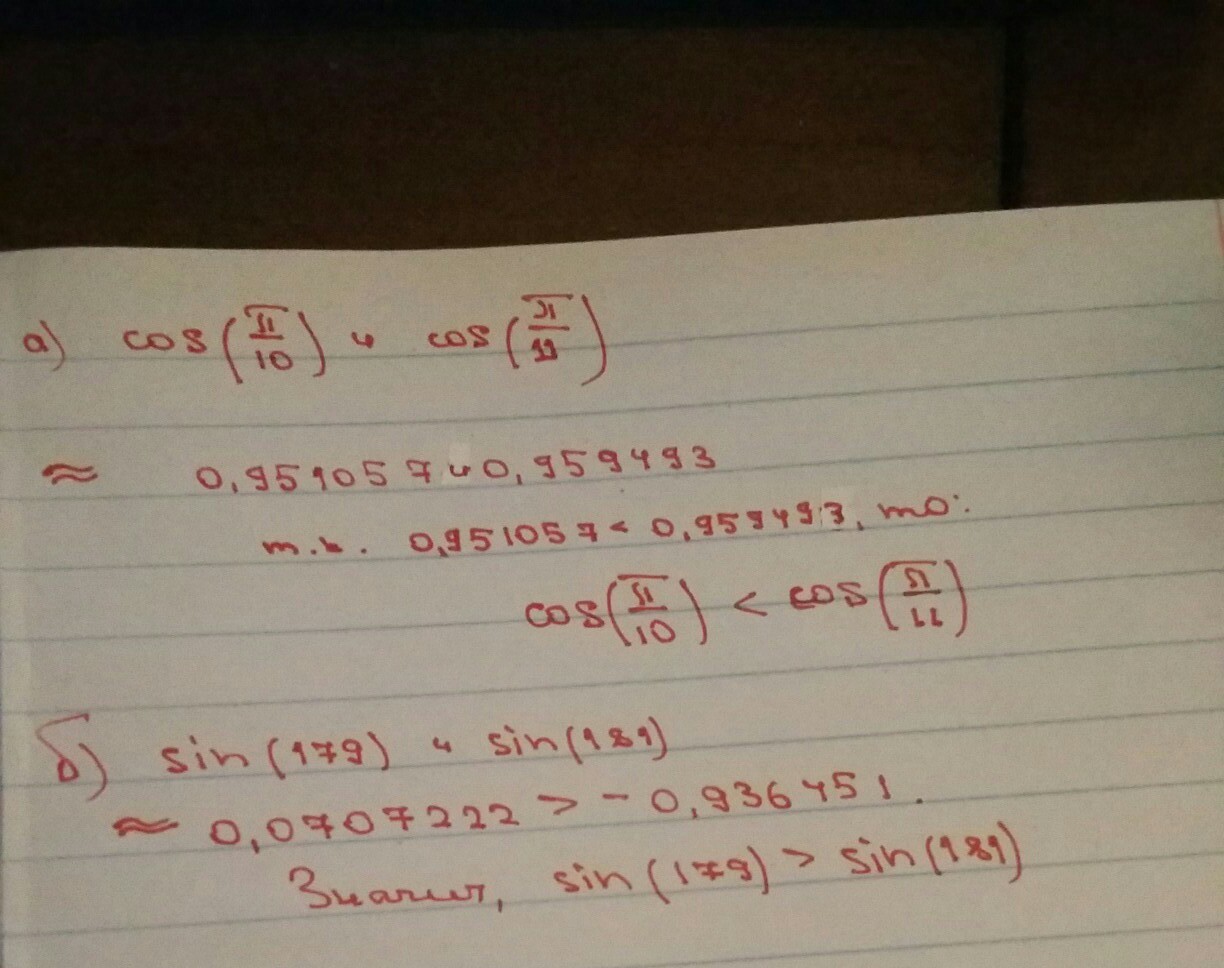 а) cos(π/10) и cos(π/11)
≈ 0,951057 и 0,959493
т.к. 0,951057 < 0,959493, то:
cos(π/10) < cos(π/11)
б) sin(179) и sin(181)
≈ 0,0707222 > - 0,936451.
Значит, sin(179) > sin(181)